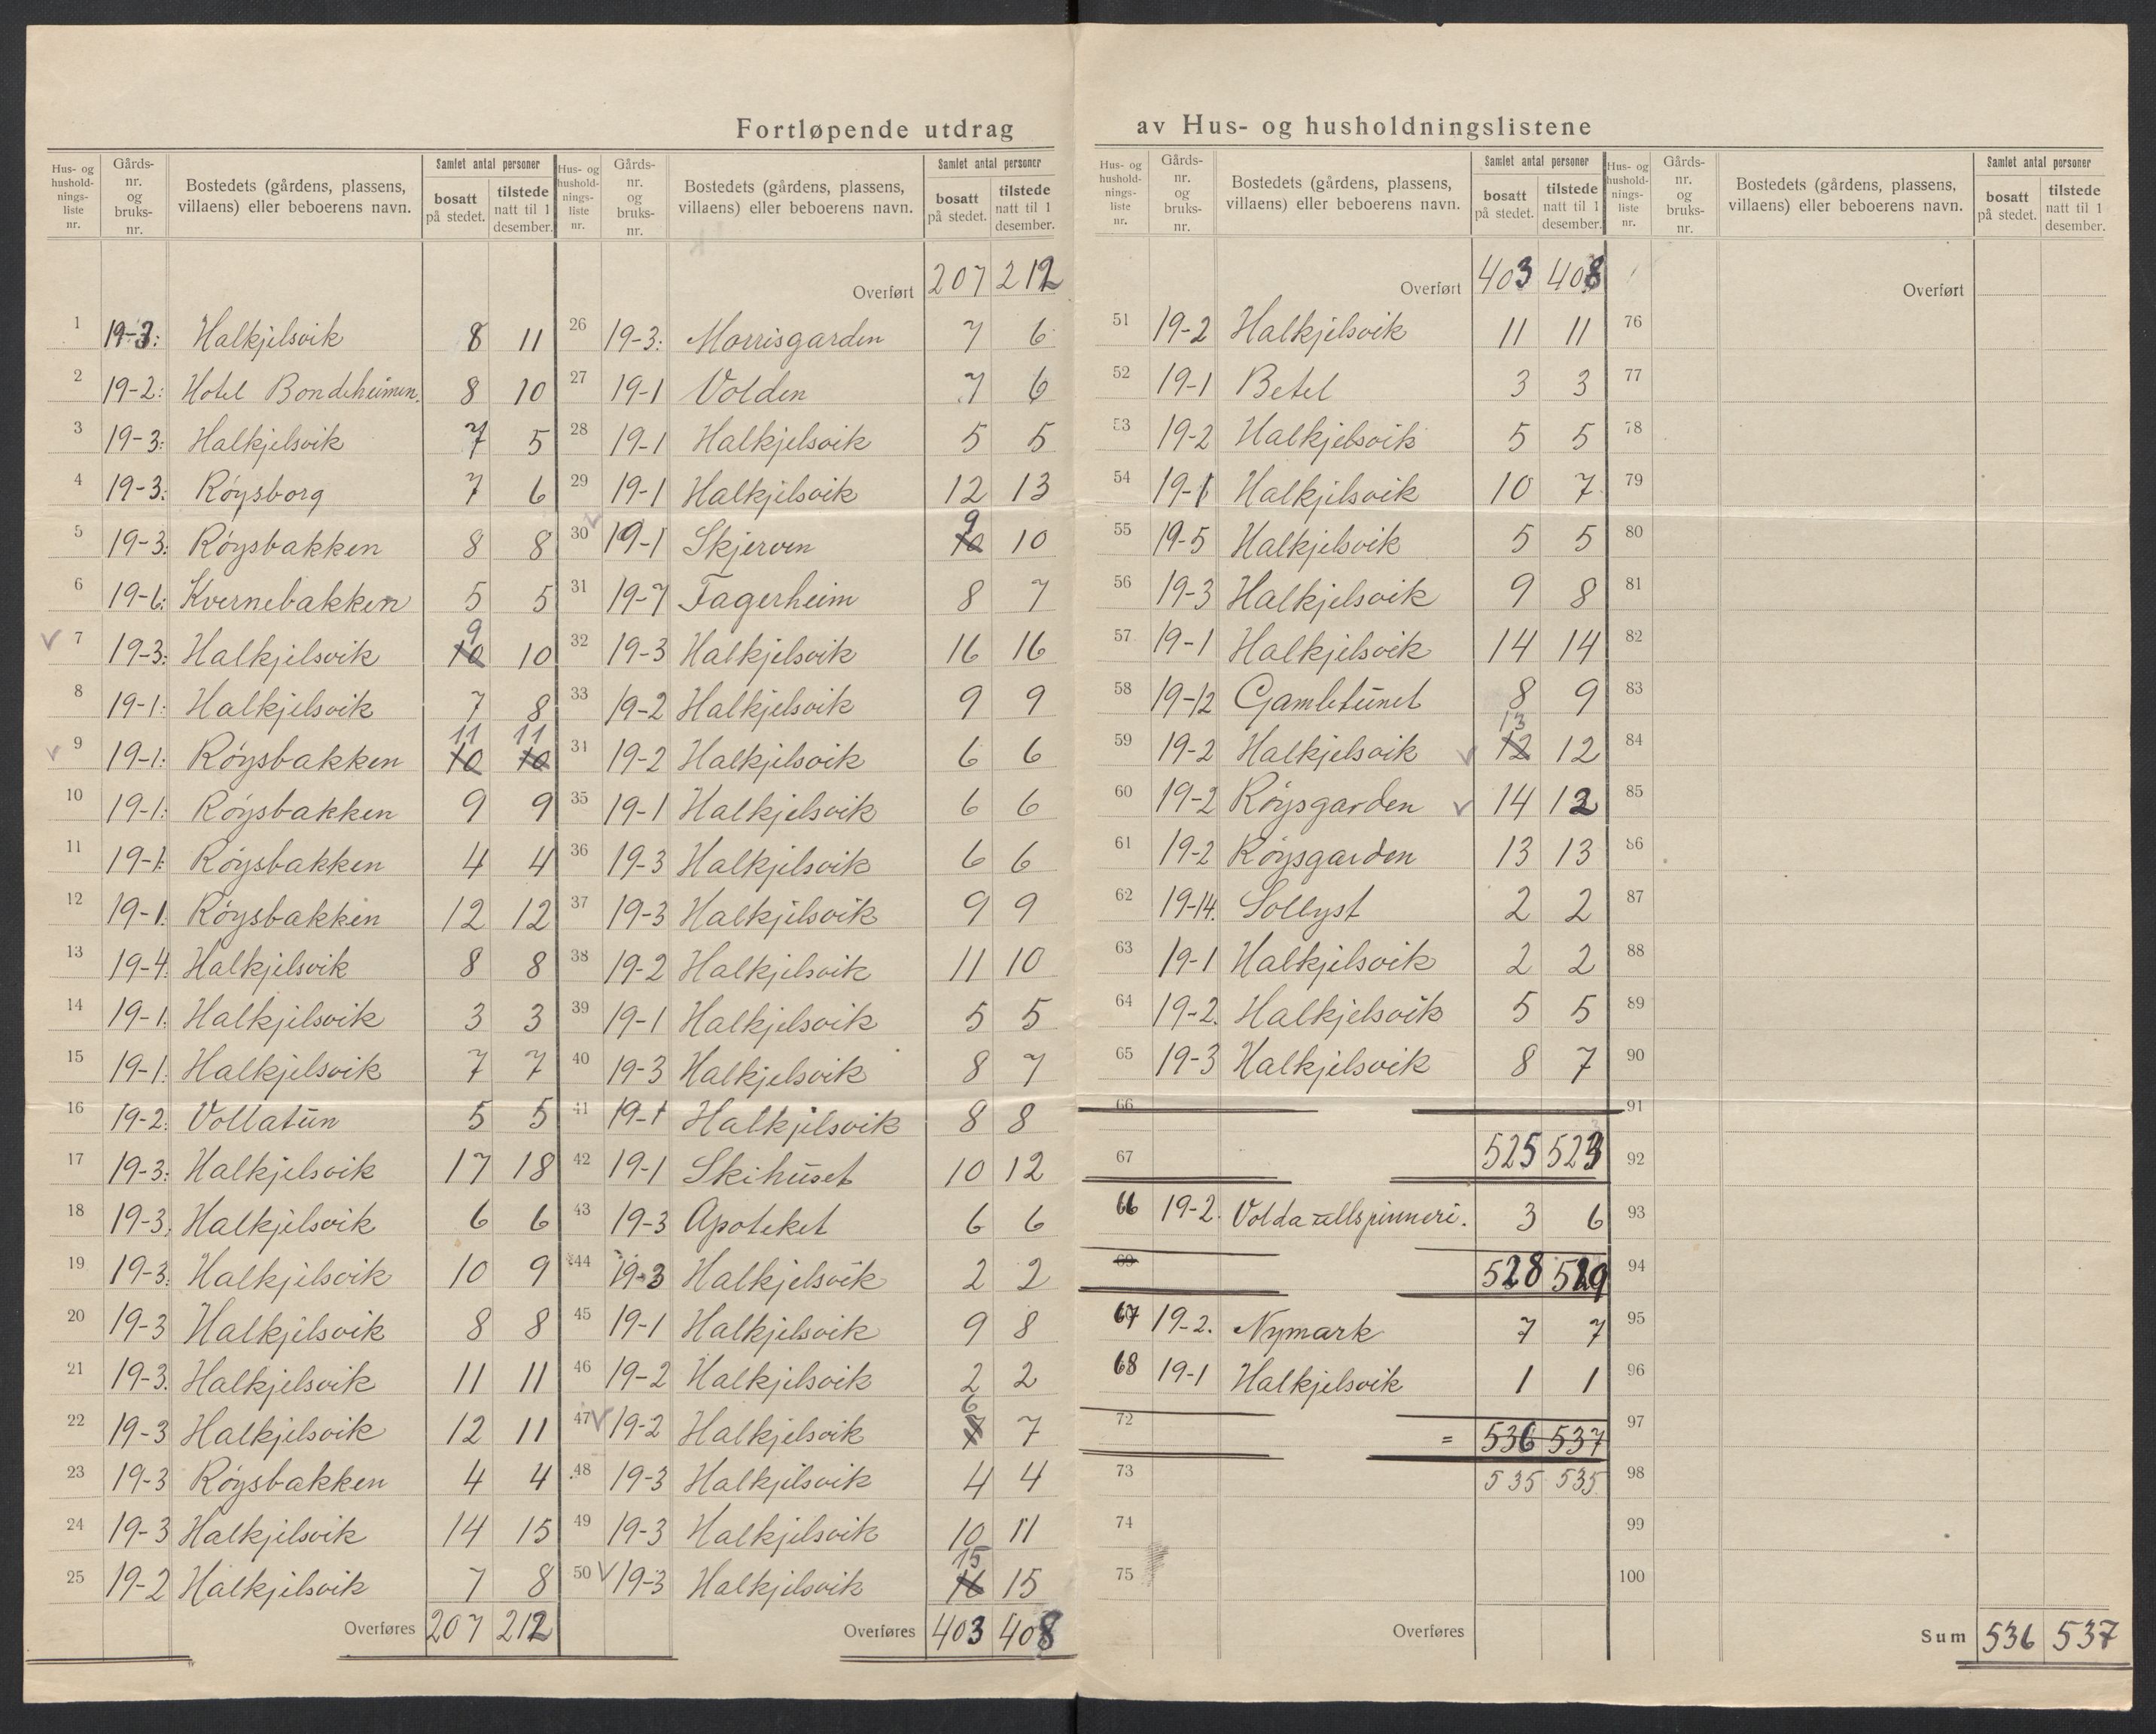 Fortløpende utdrag av Hus- og husholdningslistene
Hus- og hushold-nings-liste nr. Gårds-nr. og bruks-nr. Bostedets (gårdens, plassens, villaens) eller beboerens navn. Samlet antal personer bosatt på stedet. tilstede natt til 1 desember.
1 19-3: Halkjelsvik 8 11
2 19-2: Hotel Bondeheimen. 8 10
3 19-3: Halkjelsvik 7 5
4 19-3: Röysborg 7 6
5 19-3: Röysbakken 8 8
6 19-6: Kvernebakken 5 5
7 19-3: Halkjelsvik 10 9 10
8 19-1: Halkjelsvik 7 8
9 19-1: Röysbakken 10 11 10 11
10 19-1: Röysbakken 9 9
11 19-1: Röysbakken 4 4
12 19-1. Röysbakken 12 12
13 19-4. Halkjelsvik 8 8
14 19-1. Halkjelsvik 3 3
15 19-1. Halkjelsvik 7 7
16 19-2. Vollatūn 5 5
17 19-3: Halkjelsvik 17 18
18 19-3. Halkjelsvik 6 6
19 19-3. Halkjelsvik 10 9
20 19-3 Halkjelsvik 8 8
21 19-3. Halkjelsvik 11 11
22 19-3 Halkjelsvik 12 11
23 19-3 Röysbakken 4 4
24 19-3 Halkjelsvik 14 15
25 19-2 Halkjelsvik 7 8
Overføres 207 212
Hus- og hushold-nings-liste nr. Gårds-nr. og bruks-nr. Bostedets (gårdens, plassens, villaens) eller beboerens navn. Samlet antal personer bosatt på stedet. tilstede natt til 1 desember.
Overført 207 212
26 19-3: Morrisgarden 7 6
27 19-1 Volden 7 6
28 19-1 Halkjelsvik 5 5
29 19-1 Halkjelsvik 12 13
30 19-1 Skjerven 10 9 10
31 19-7 Fagerheim 8 7
32 19-3 Halkjelsvik 16 16
33 19-2 Halkjelsvik 9 9
34 19-2 Halkjelsvik 6 6
35 19-1 Halkjelsvik 6 6
36 19-3 Halkjelsvik 6 6
37 19-3 Halkjelsvik 9 9
38 19-2 Halkjelsvik 11 10
39 19-1 Halkjelsvik 5 5
40 19-3 Halkjelsvik 8 7
41 19-1 Halkjelsvik 8 8
42 19-1 Skihūset 10 12
43 19-3 Apoteket 6 6
44 19-3 Halkjelsvik 2 2
45 19-1 Halkjelsvik 9 8
46 19-2 Halkjelsvik 2 2
47 19-2 Halkjelsvik 7 6 7
48 19-3 Halkjelsvik 4 4
49 19-3 Halkjelsvik 10 11
50 19-3 Halkjelsvik 16 15 15
Overføres 403 408
Hus- og hushold-nings-liste nr. Gårds-nr. og bruks-nr. Bostedets (gårdens, plassens, villaens) eller beboerens navn. Samlet antal personer bosatt på stedet. tilstede natt til 1 desember.
Overført 403 408
51 19-2 Halkjelsvik 11 11
52 19-1 Betel 3 3
53 19-2 Halkjelsvik 5 5
54 19-1 Halkjelsvik 10 7
55 19-5 Halkjelsvik 5 5
56 19-3 Halkjelsvik 9 8
57 19-1 Halkjelsvik 14 14
58 19-12 Gamletūnet 8 9
59 19-2 Halkjelsvik 12 13 12
60 19-2 Röysgarden 14 12
61 19-2 Röysgarden 13 13
62 19-14. Sollyst 2 2
63 19-1 Halkjelsvik 2 2
64 19-2. Halkjelsvik 5 5
65 19-3 Halkjelsvik 8 7
66
67 525 523
66 19-2. Volda ullspinneri. 3 6
69 528 529
67 19-2. Nymark 7 7
68 19-1 Halkjelsvik 1 1
72 = 536 537
73 535 535
74
75
Overføres
Hus- og hushold-nings-liste nr. Gårds-nr. og bruks-nr. Bostedets (gårdens, plassens, villaens) eller beboerens navn. Samlet antal personer bosatt på stedet. tilstede natt til 1 desember.
Overført
76
77
78
79
80
81
82
83
84
85
86
87
88
89
90
91
92
93
94
95
96
97
98
99
100
Sum 536 537